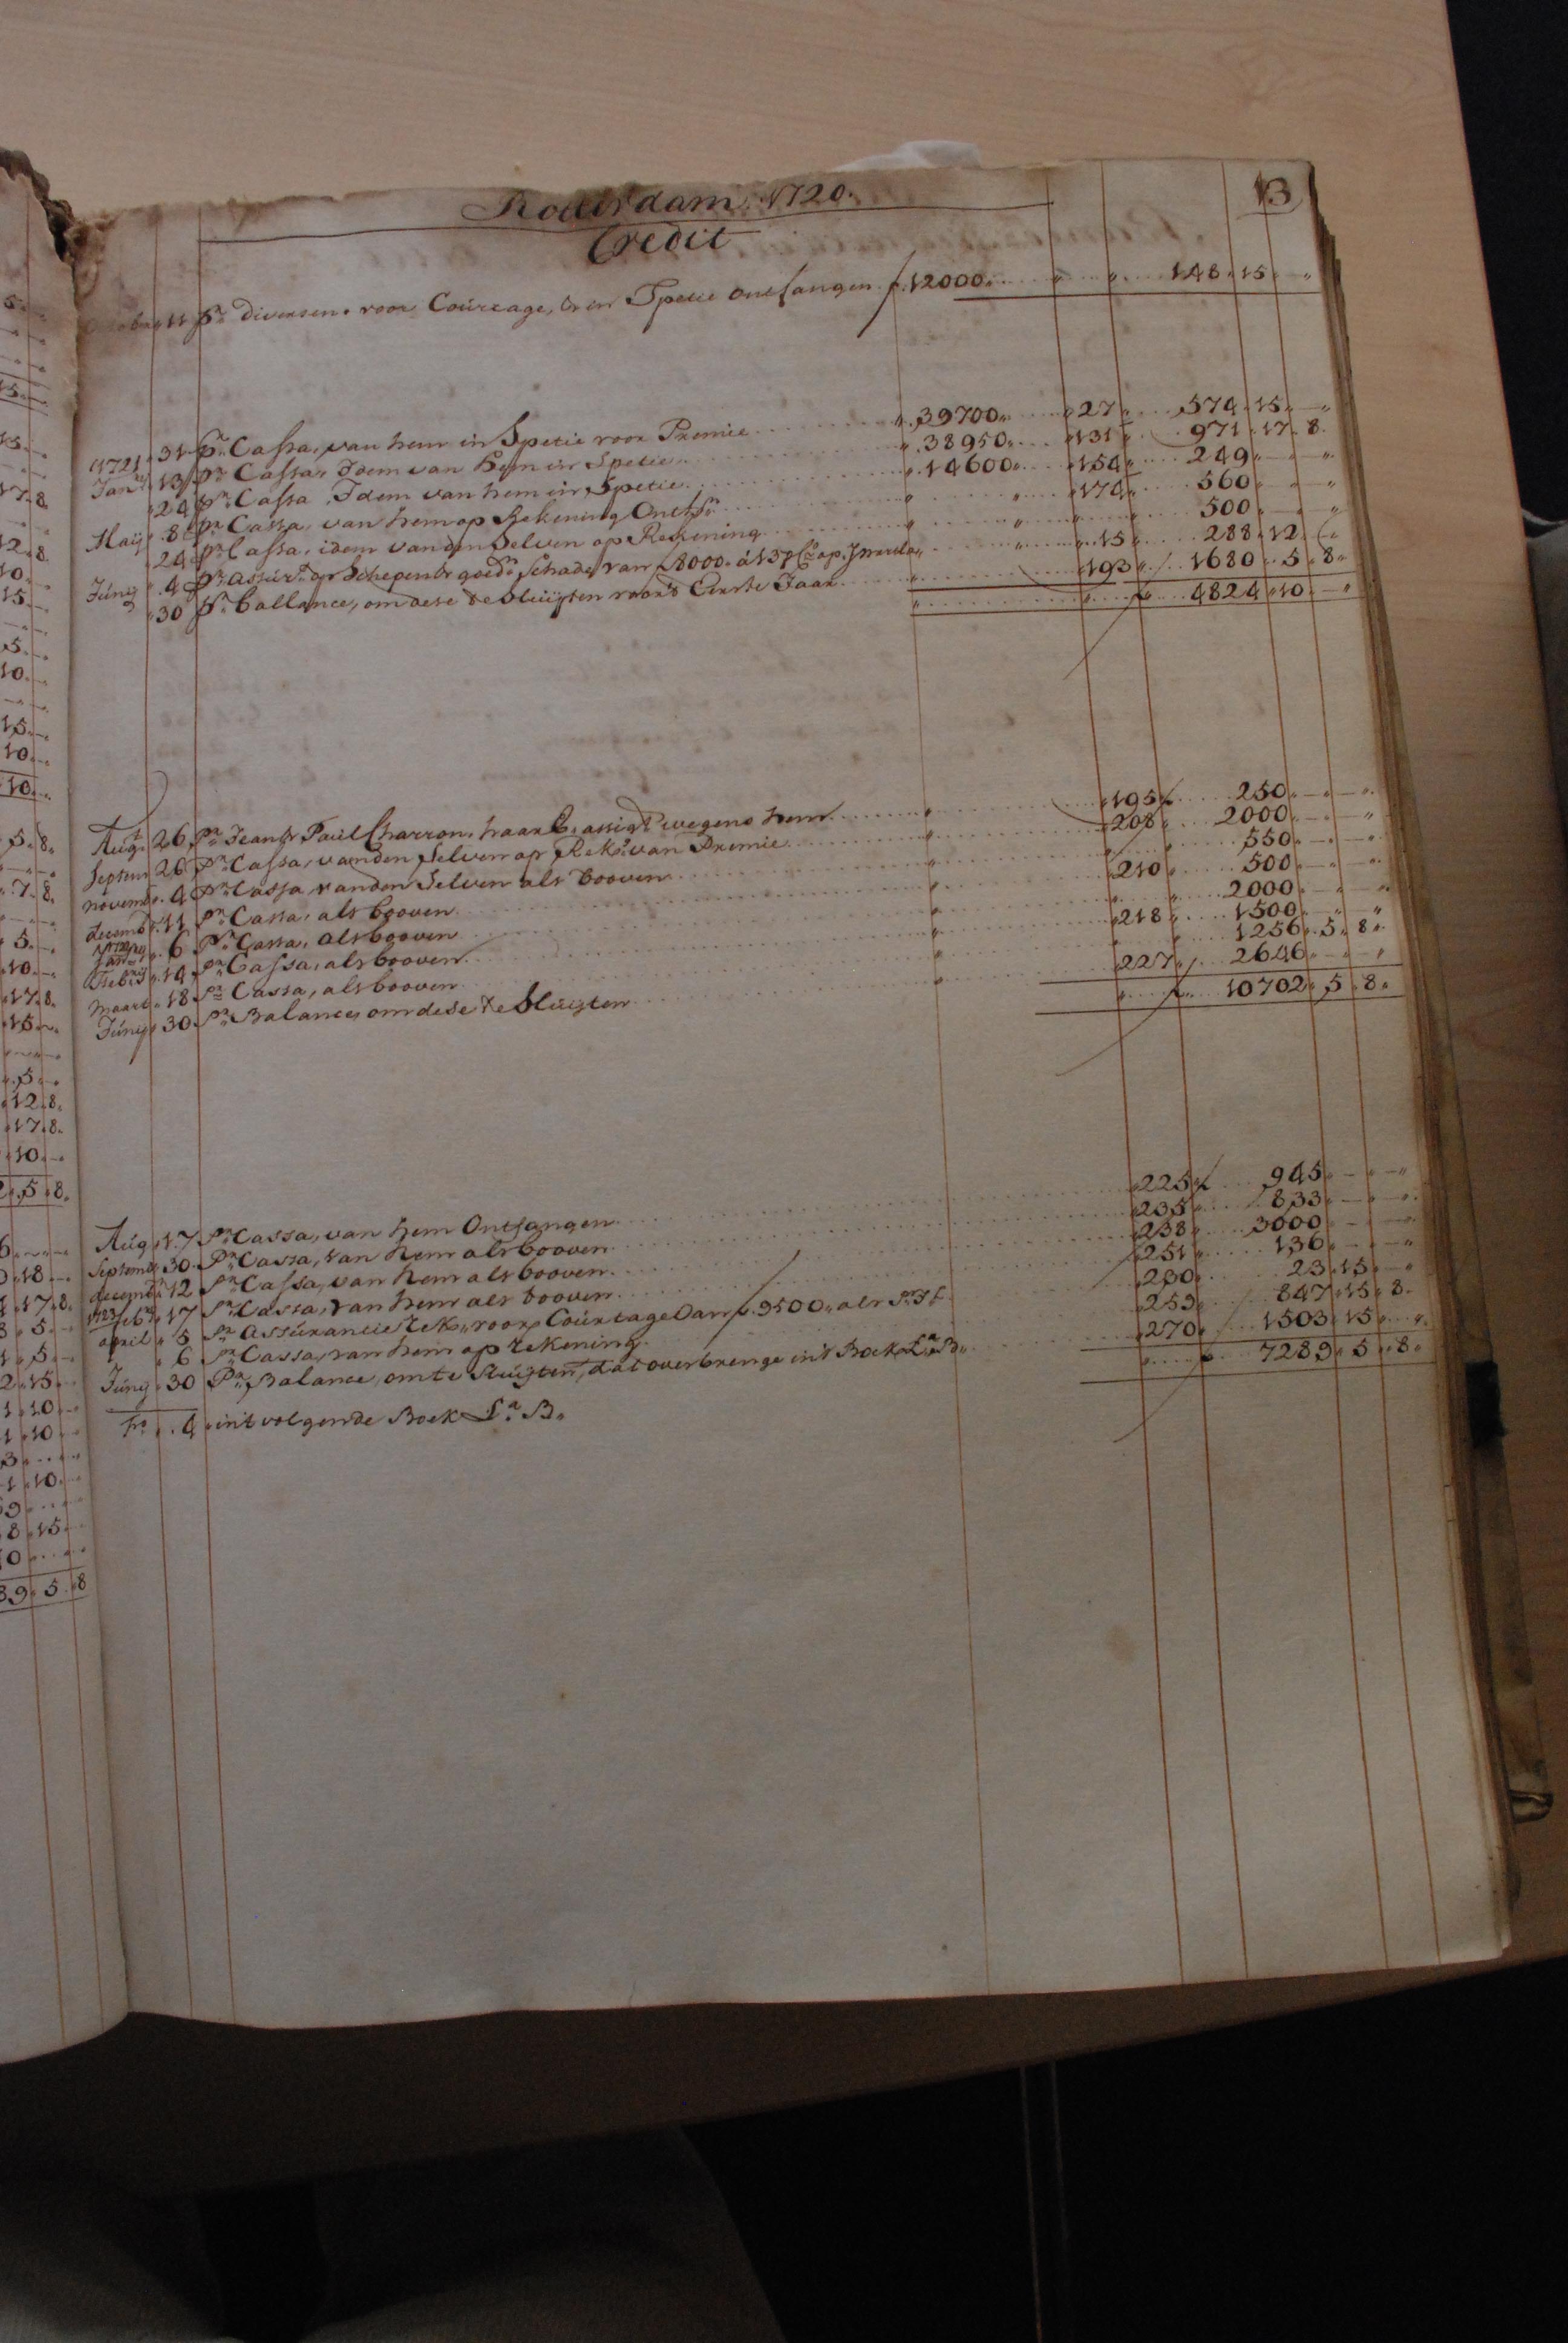 Rotterdam 1720.
13
Credit
11 Pr. diversen. voor Courtage, & in Spetie ontfangen f. 12000 148 15
1721
Janry 31 Pr. Cassa, van hem in Spetie voor Premie 39700 27 574 15
13 Pr. Cassa, Idem van hem in Spetie 38950 131 971 17 8
24 Pr. Cassa Idem van hem in Spetie 14600 154 249
Maij 8 Pr. Cassa, van hem op Rekening Ontfn. 174 560
24 Pr. Cassa, idem van den Selven op Rekening 500
Junij 4 Pr. assur. op Schepen & goedn. Schade van f 8000. á 15 288 12
30 Pr. ballance, om dese te sluijten voor 't Eerste Jaar 193 1680 5 8
4824 10
Aug 26 Pr. Jean & Paul Charron, haar C. assigt. wegens hem 195 250
Septem 26 Pr. Cassa, van den Selven op Rek. van Premie 208 2000
novemb. 4 Pr. Cassa, van den Selven als booven 550
decemb. 11 Pr. Cassa, als booven 210 500
1722 Janry 6 Pr. Cassa, als booven 2000
Febrij 14 Pr. Cassa, als booven 218 1500
maart 18 Pr. Cassa, als booven 1256 5 8
Junij 30 Pr. Balance, om dese te sluijten 227 2646
10702 5 8
Aug 17 Pr. Cassa, van hem Ontfangen 225 945
Septemb 30 Pr. Cassa, van hem als booven 235 833
decemb 12 Pr. Cassa, van hem als booven 238 3000
1723 feb. 17 Pr. Cassa, van hem als booven 251 136
april 5 Pr. Assurantie Rek., voor Courtage van f. 9500 als 280 23 15
6 Pr. Cassa, van hem op rekening 259 847 15 8
Junij 30 Pr. Balance, om te Sluijten, dat overbrenge in't Boek La. B. 270 1503 15
7289 5 8
fo. 4 in't volgende Boek La. B.